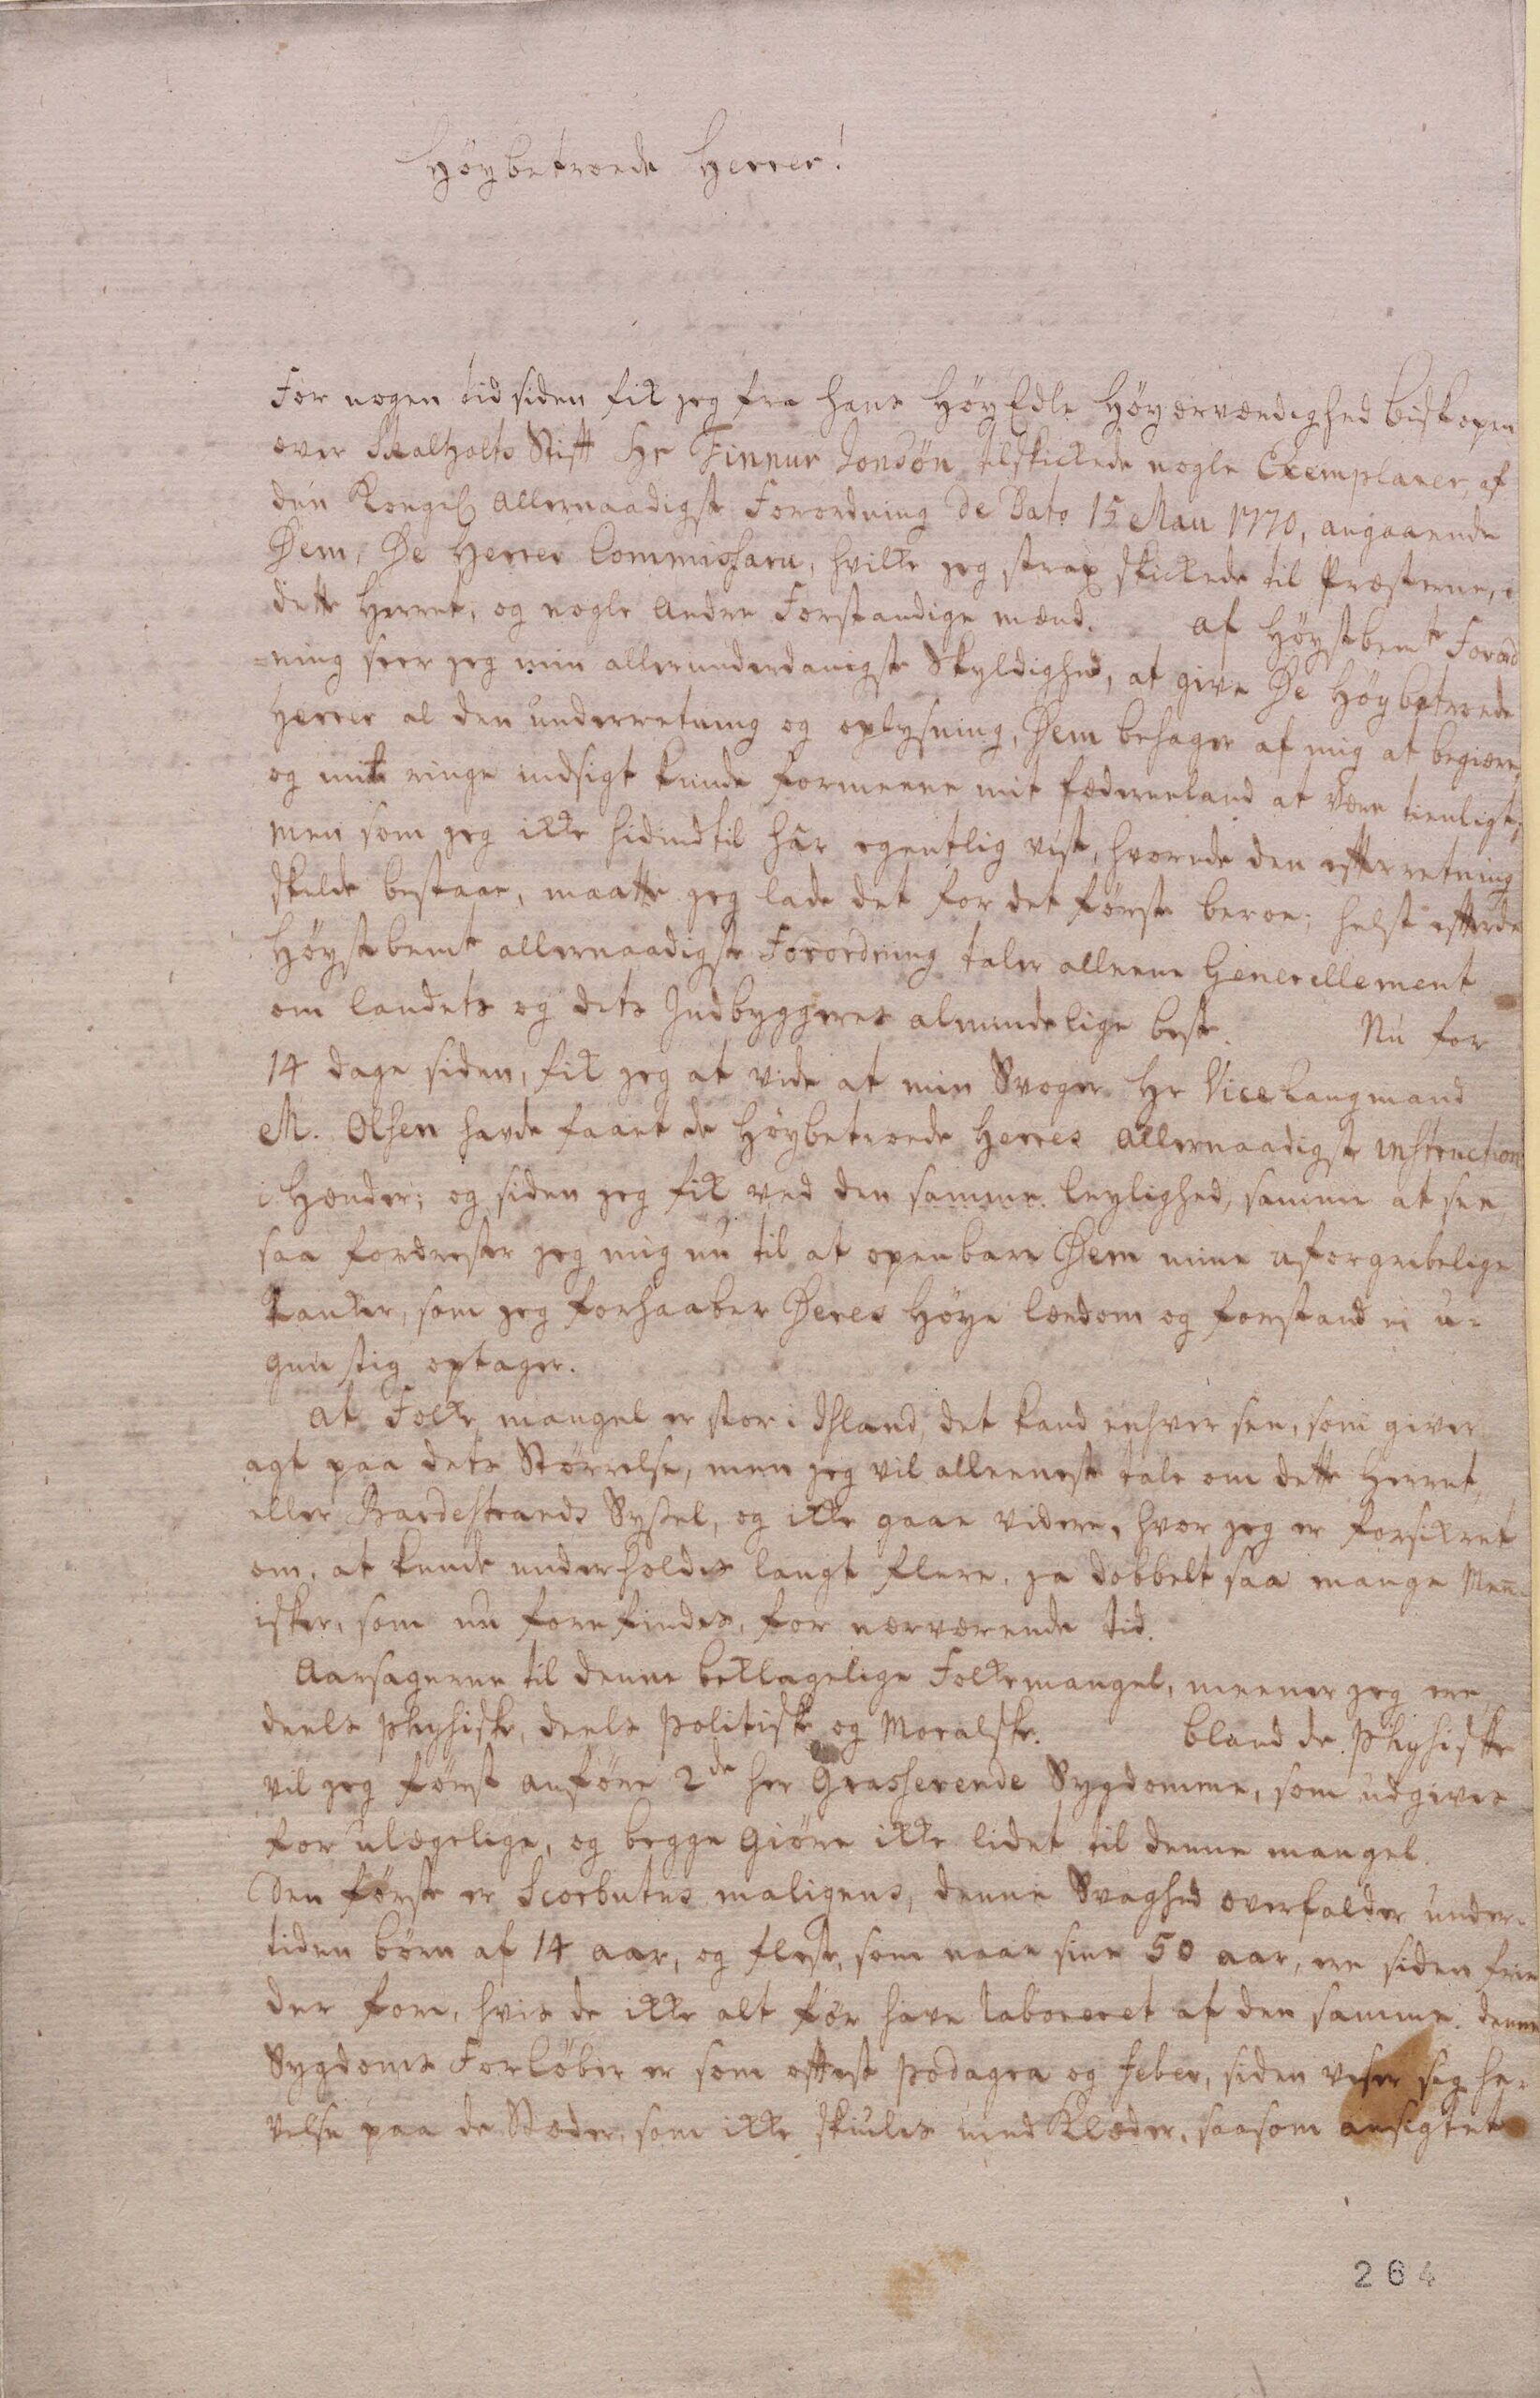 Höybetroede Herrer!
For nogen tid siden fik jeg fra hans HöyEdle Höyærværdighed biskopen
over Skalholts Stift Hr Finnur Jonsön tilskickede nogle Exemplarer, af
den Kongel allernaadigste Forordning De Dato 15 Maii 1770, angaaende
Dem, De Herrer Commissarii, hvilke jeg strax skickede til Præsterne, i
dette Herret, og nogle andre Forstandige mænd. af Höystbemte Forord
=ning seer jeg min allerunderdanigste Skyldighed, at give De Höybetroede
Herrer al den underretning og oplysning, Dem behager af mig at begiære,
og mit ringe indsigt kunde formeene mit fæderneland at være tienligt;
men som jeg ikke hidindtil har egentlig vist, hvorudi den efterretning
skulde bestaae, maatte jeg lade det for det förste beroe; helst efterdi
Höystbemte allernaadigste Forordning taler alleene Generellement
om landets og dets Indbyggeres almindelige beste. Nu for
14 dage siden, fik jeg at vide at min Svoger Hr Vice Laugmand
M. Olsen havde faaet de Höybetroede Herres allernaadigste instruction
i Hænder; og siden jeg fik ved den samme leylighed, samme at see,
saa fordrister jeg mig nu til at openbare Dem mine uforgribelige
Tanker, som jeg forhaaber Deres Höye lærdom og forstand ei u=
gunstig optager.
At Folke mangel er stor i Island, det kand enhver see, som giver
agt paa dets Störrelse, men jeg vil alleeneste tale om dette Herret,
eller Bardestrands Syssel, og ikke gaae videre, hvor jeg er forsikret
om, at kunde underholdes langt flere, ja dobbelt saa mange Menn=
isker, som nu forefindes, for nærværende tid.
Aarsagerne til denne beklagelige Folkemangel, meener jeg ere
deels physiske, deels politiske og Moralske. bland de Physiske
vil jeg först anföre 2de her Grasserende Sygdomme, som udgives
for ulægelige, og begge giöre ikke lidet til denne mangel.
Den förste er Scorbutus maligens, denne Svaghed overfalder under=
tiden börn af 14 aar, og fleste, som naae sine 50 aar, ere siden frie
der fore, hvis de ikke alt för have laboreret af den samme. denne
Sygdoms Forlöber er som oftest podagra og feber, siden viser sig he=
velse paa de Stæder, som ikke skiules med Klæder, saasom ansigtet
264